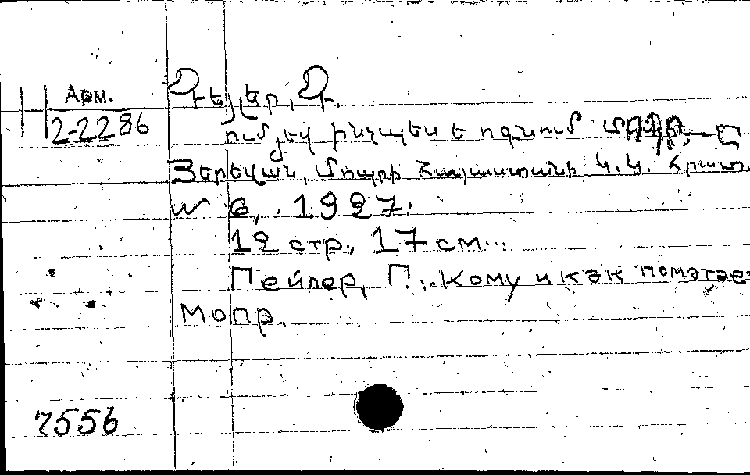 Арм.
2-2286
Պեյլեր, Պ.
ում և ինչպես է օգնում
Յերեվան, Մոպրի Հայաստանի Կ. Կ. հրատ.
6, 1927.
12 стр., 17 см.
Пейлер, П. Кому и как помогае
Мопр.
7556